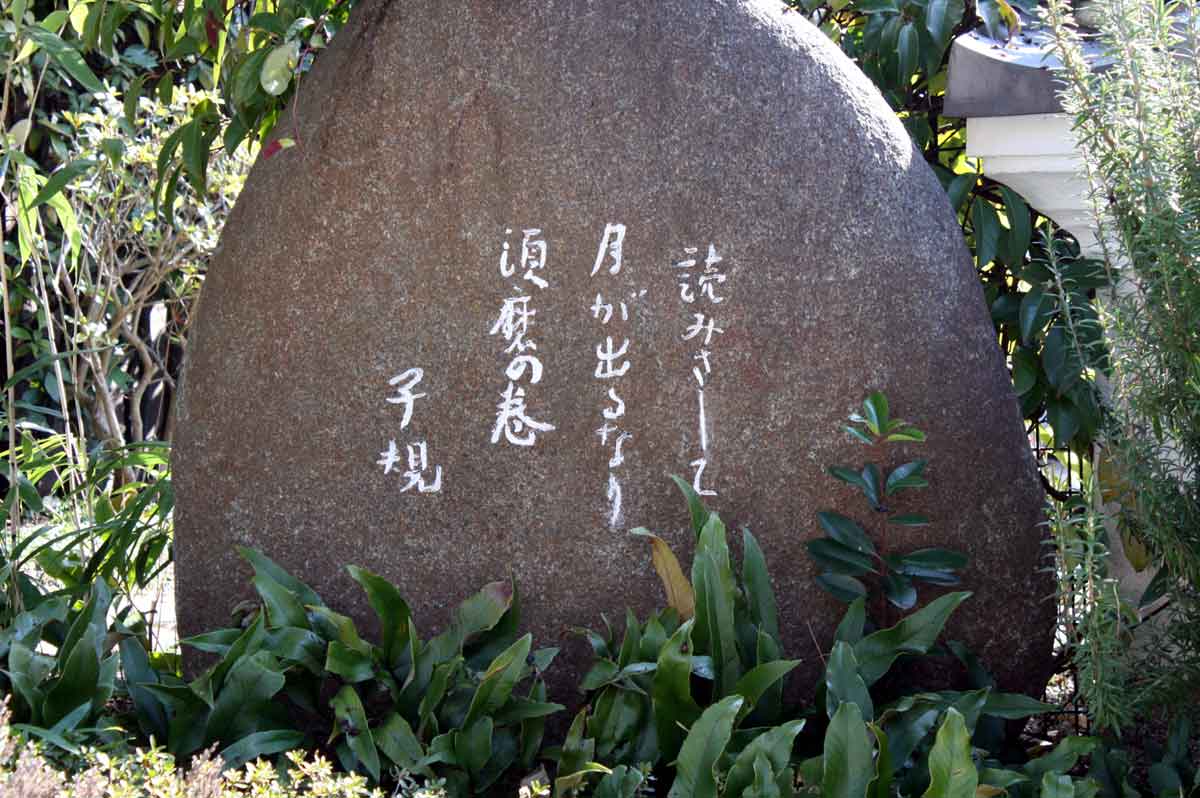 読みさして
月が出るなり
須磨の巻
子規